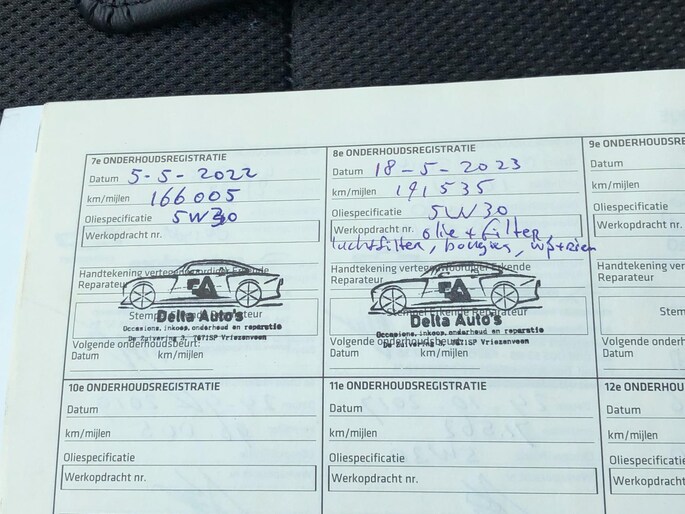 7e ONDERHOUDSREGISTRATIE
Datum 5-5-2022
km/mijlen 166005
Oliespecificatie 5W30
Werkopdracht nr.
Handtekening vertegenwoordiger Erkende
Reparateur
Stempel Erkende Reparateur
Delta Auto's
Occasions, inkoop, onderhoud en reparatie
De Zuivering 3, 7671SP Vriezenveen
Volgende onderhoudsbeurt:
Datum km/mijlen
8e ONDERHOUDSREGISTRATIE
Datum 18-5-2023
km/mijlen 191535
Oliespecificatie 5W30
Werkopdracht nr. olie + filter,
luchtfilter, bougies, wp+riem
Handtekening vertegenwoordiger Erkende
Reparateur
Stempel Erkende Reparateur
Delta Auto's
Occasions, inkoop, onderhoud en reparatie
De Zuivering 3, 7671SP Vriezenveen
Volgende onderhoudsbeurt:
Datum km/mijlen
9e ONDERHOUDSRE
Datum
km/mijlen
Oliespecificatie
Werkopdracht nr.
Handtekening ver
Reparateur
Stemp
Volgende onderh
Datum
10e ONDERHOUDSREGISTRATIE
Datum
km/mijlen
Oliespecificatie
Werkopdracht nr.
11e ONDERHOUDSREGISTRATIE
Datum
km/mijlen
Oliespecificatie
Werkopdracht nr.
12e ONDERHOUD
Datum
km/mijlen
Oliespecificatie
Werkopdracht nr.